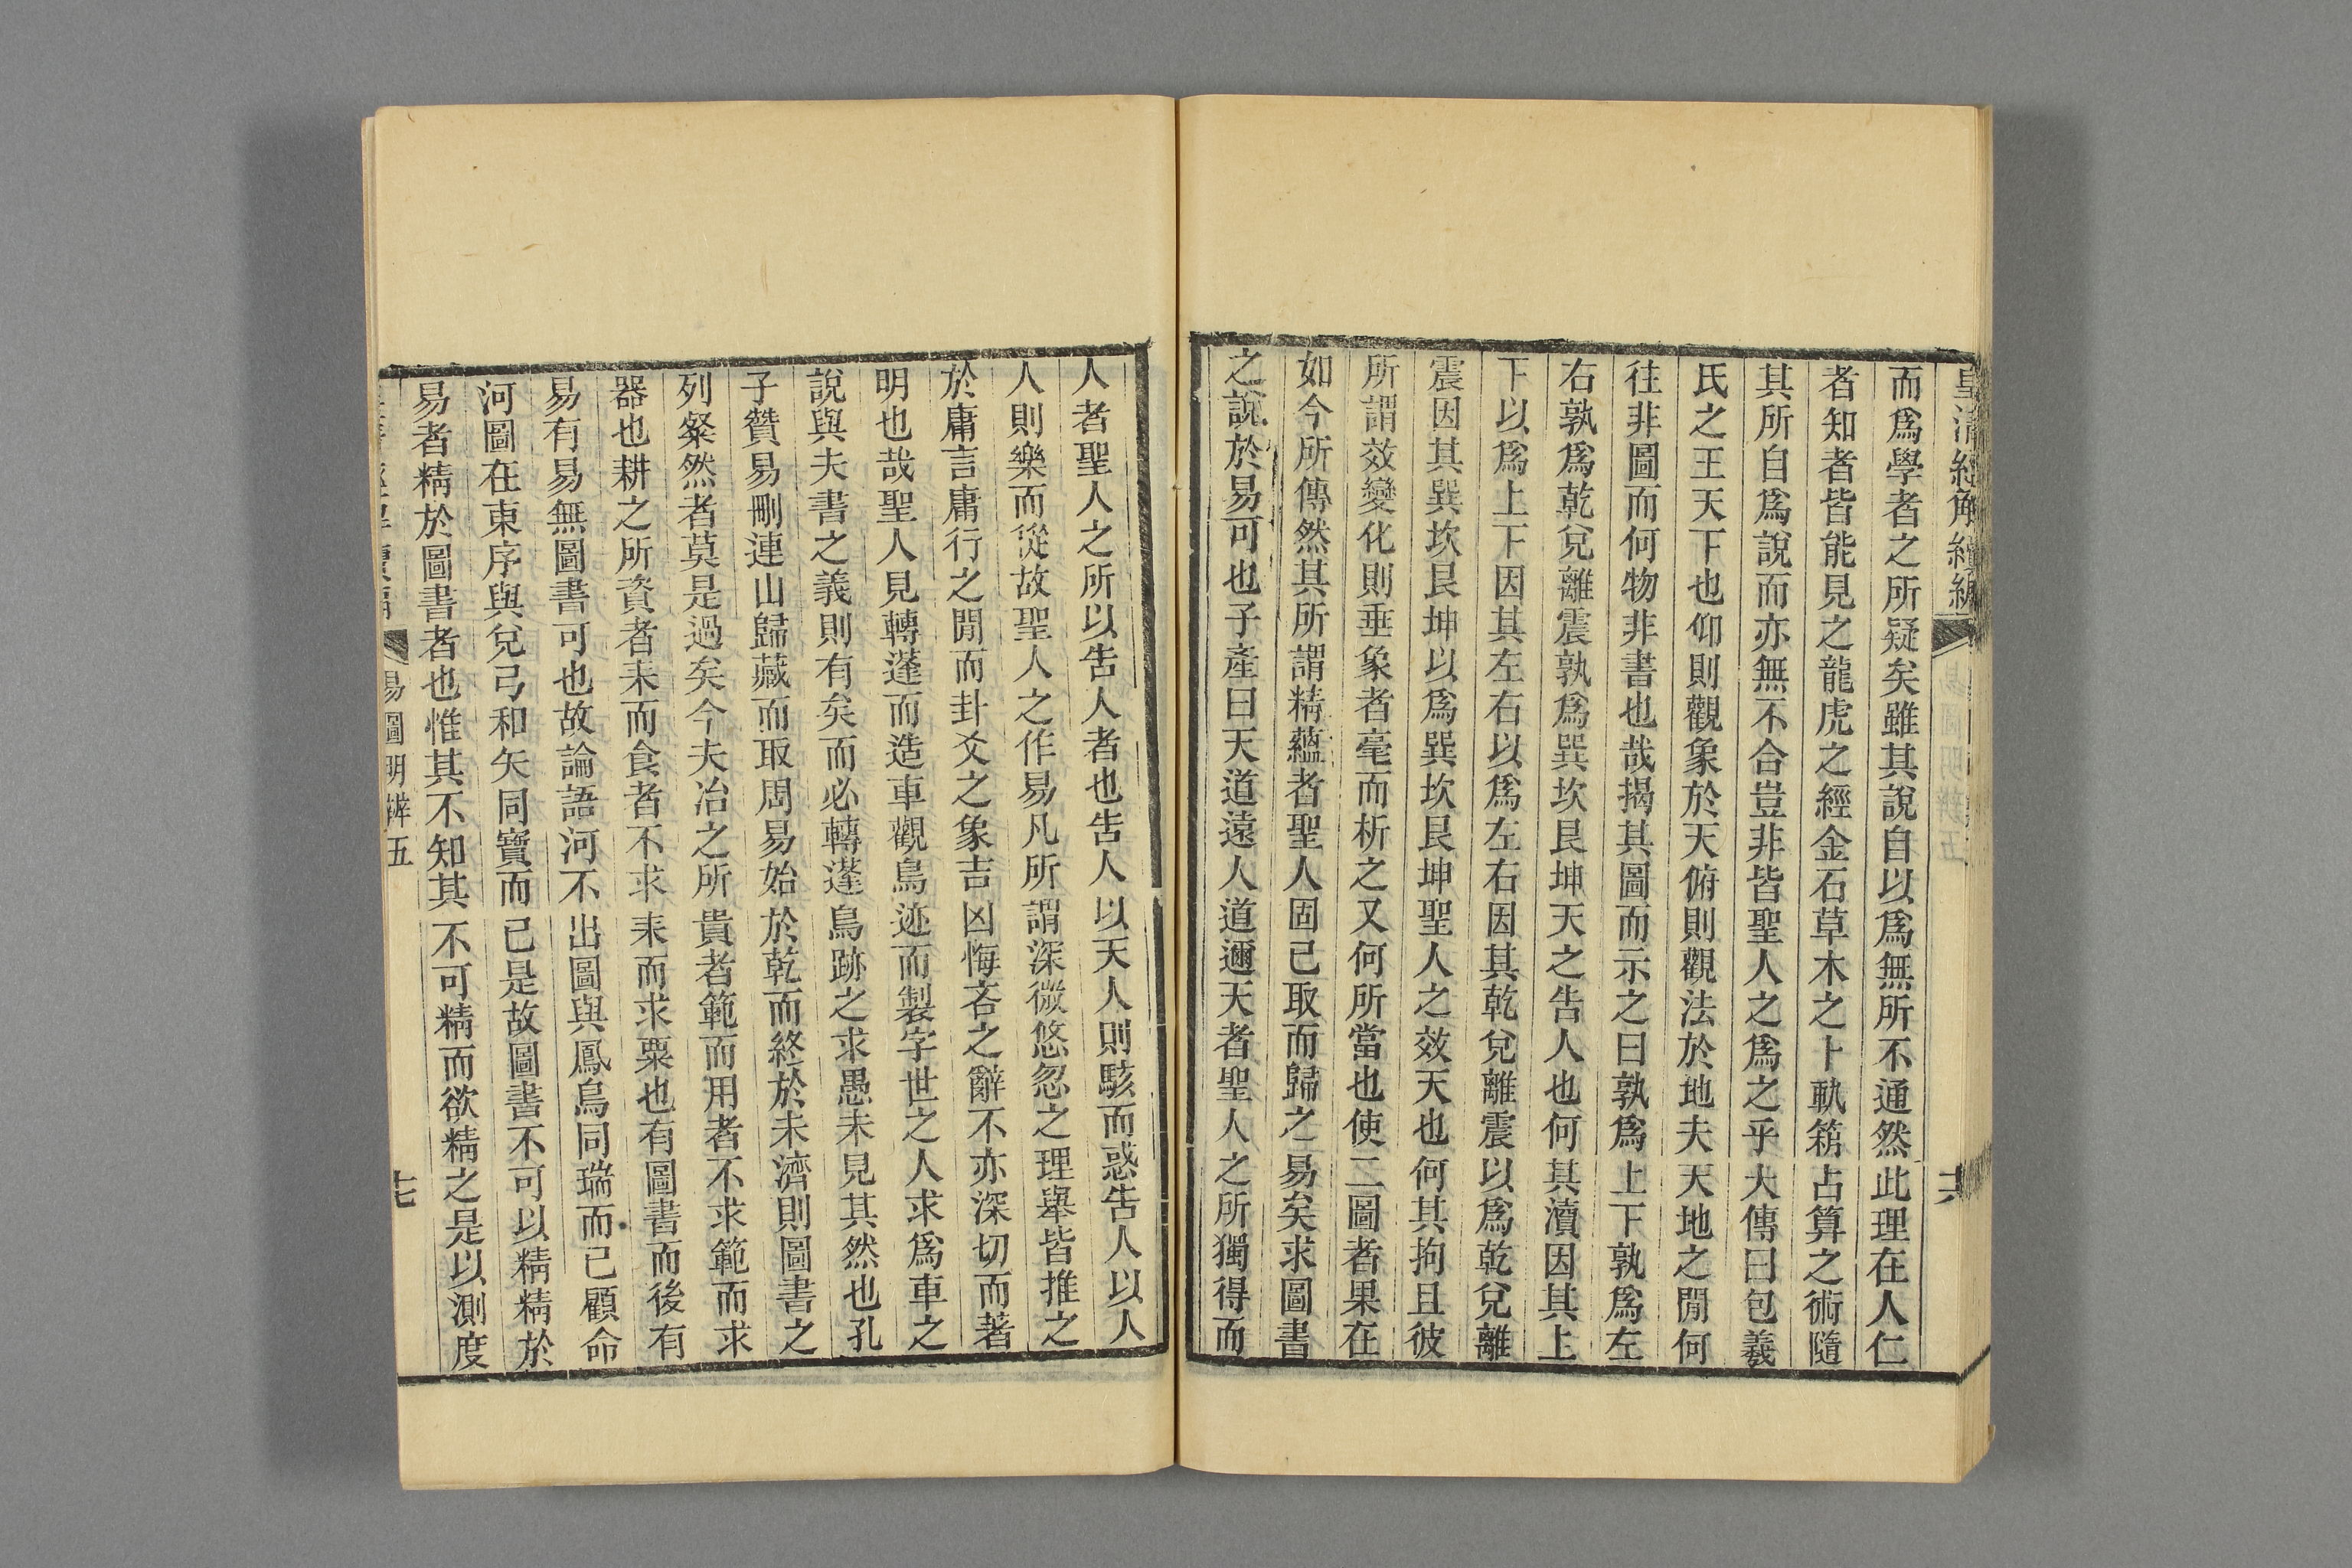 皇清經解續編
十六
而爲學者之所疑矣雖其說自以爲無所不通然此理在人仁
者知者皆能見之龍虎之經金石草木之卜軌䇭占算之術隨
其所自爲說而亦無不合豈非皆聖人之爲之乎大傳曰包羲
氏之王天下也仰則觀象於天俯則觀法於地夫天地之閒何
往非圖而何物非書也哉揭其圖而示之曰孰爲上下孰爲左
右孰爲乾兌離震孰爲巽坎艮坤天之告人也何其瀆因其上
下以爲上下因其左右以爲左右因其乾兌離震以爲乾兌離
震因其巽坎艮坤以爲巽坎艮坤聖人之效天也何其拘且彼
所謂效變化則垂象者毫而析之又何所當也使二圖者果在
如今所傳然其所謂精蘊者聖人固已取而歸之易矣求圖書
之說於易可也子產曰天道遠人道邇天者聖人之所獨得而
人者聖人之所以告人者也告人以天人則駭而惑告人以人
人則樂而從故聖人之作易凡所謂深微悠忽之理舉皆推之
於庸言庸行之閒而卦爻之象吉凶悔吝之辭不亦深切而著
明也哉聖人見轉蓬而造車觀鳥迹而製字世之人求爲車之
說與夫書之義則有矣而必轉蓬鳥跡之求愚未見其然也孔
子贊易刪連山歸藏而取周易始於乾而終於未濟則圖書之
列粲然者莫是過矣今夫冶之所貴者範而用者不求範而求
器也耕之所資者耒而食者不求耒而求粟也有圖書而後有
易有易無圖書可也故論語河不出圖與鳳鳥同瑞而已顧命
河圖在東序與兌弓和矢同寶而已是故圖書不可以精精於
易者精於圖書者也惟其不知其不可精而欲精之是以測度
易圖明辨五
十七